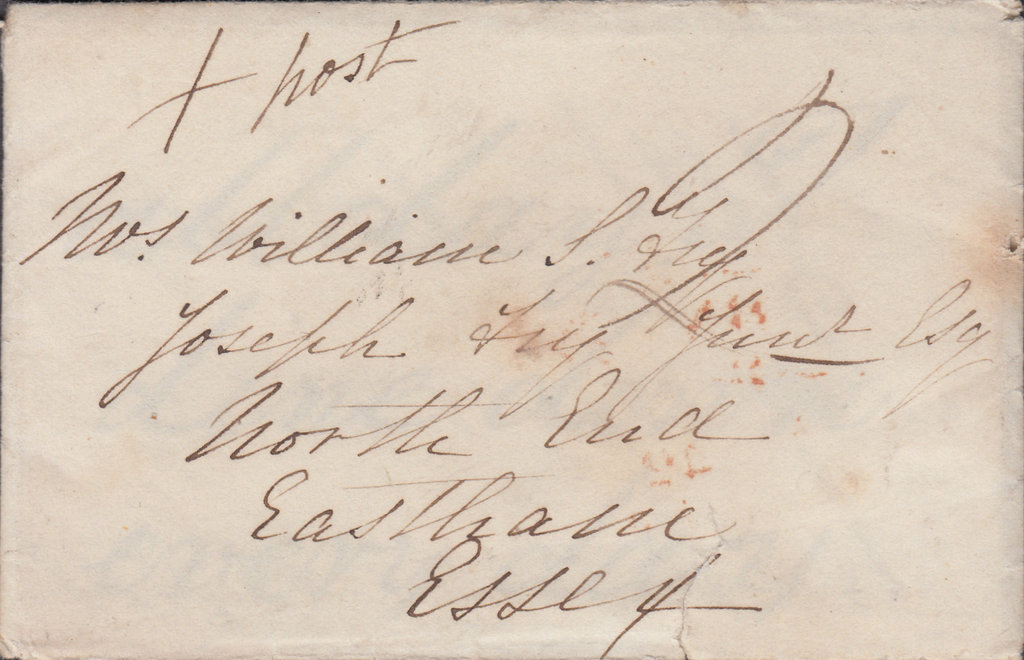 + post
Mrs. William S. Fry
Joseph Fry Junr Esq
North End
Eastham
Essex